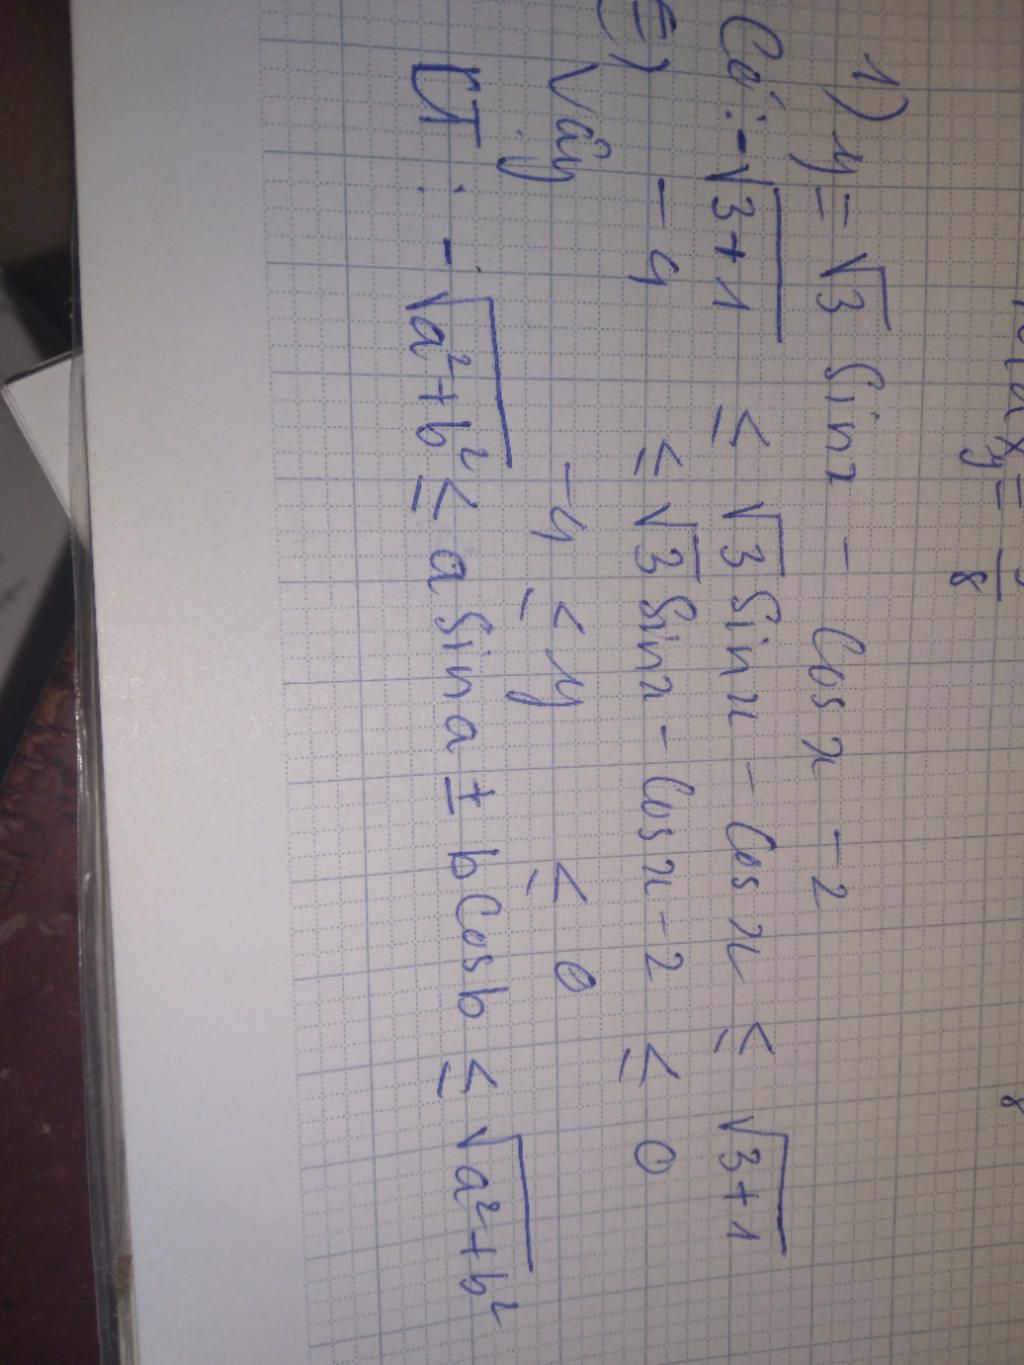 Max y = 8
1) y = √3 Sin x - Cos x - 2
Có: -√(3+1) ≤ √3 Sin x - Cos x ≤ √(3+1)
(=) -4 ≤ √3 Sin x - Cos x - 2 ≤ 0
Vậy -4 ≤ y ≤ 0
CT: -√(a²+b²) ≤ a Sin a ± b Cos b ≤ √(a²+b²)